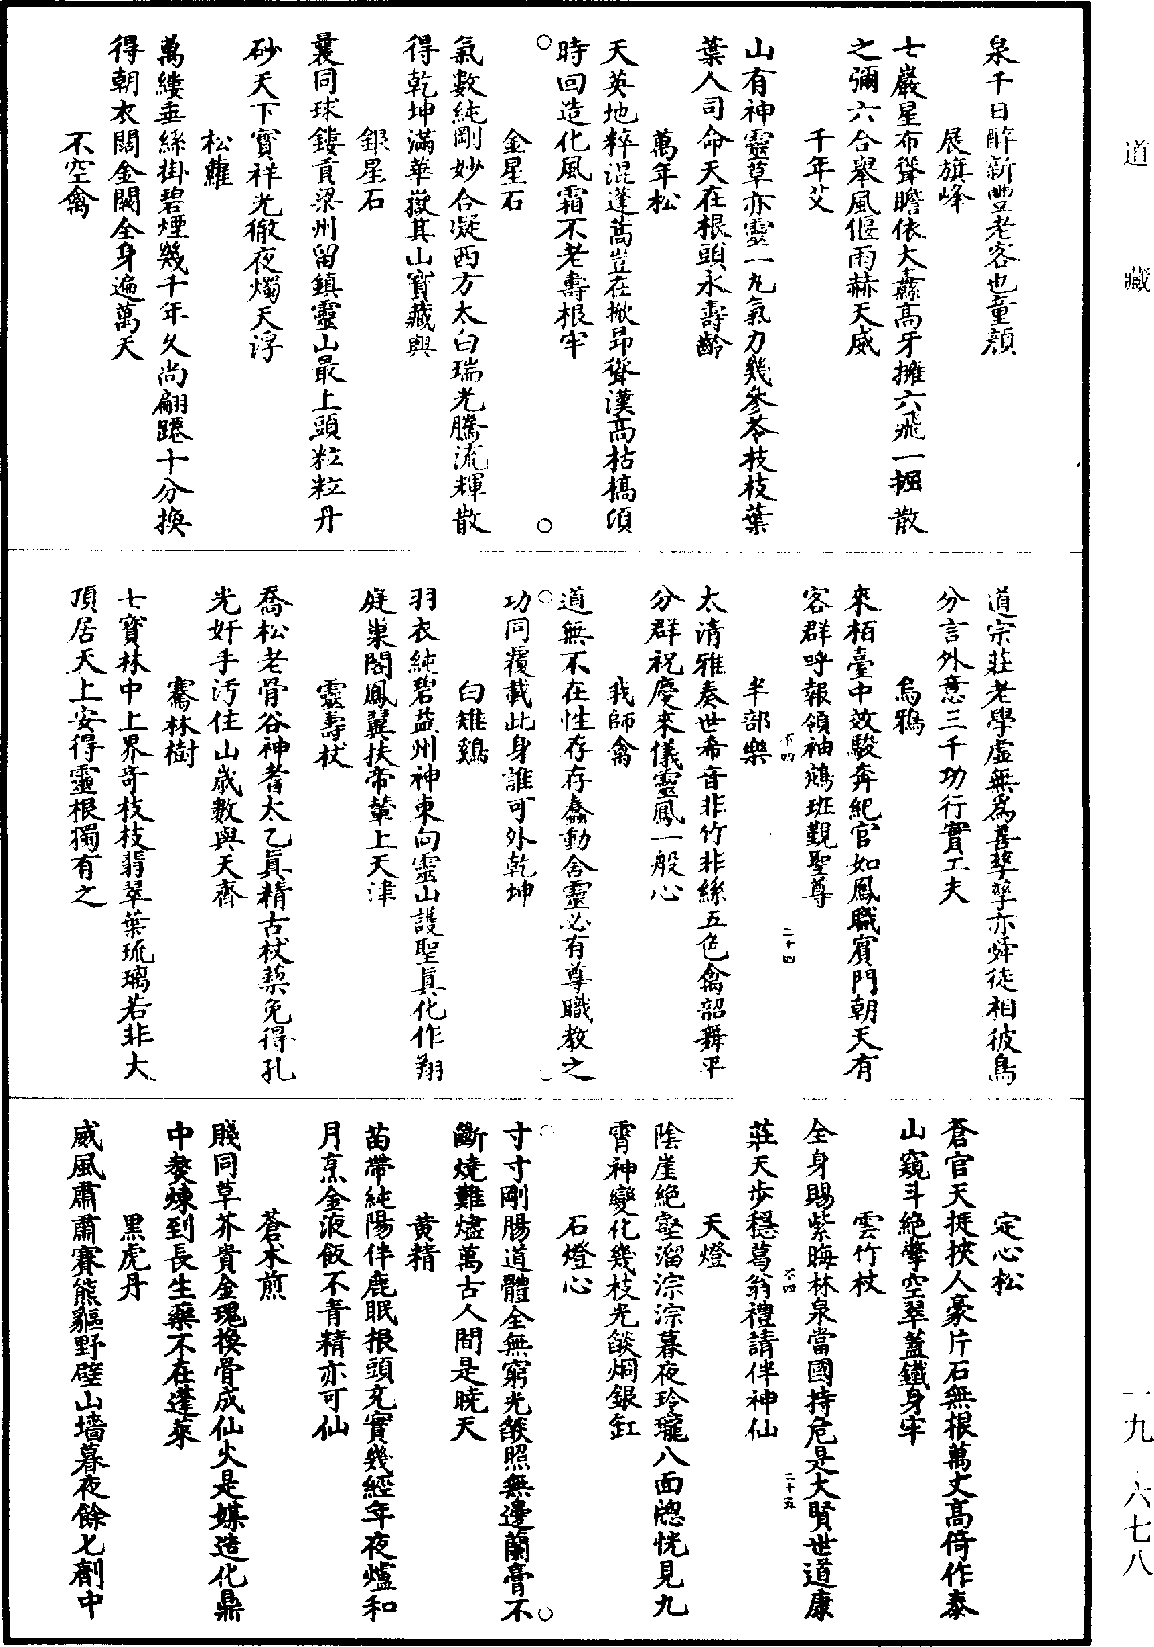 道藏
一九 六七八
泉千日醉新豐老客也童顏
展旗峰
七巖星布聳瞻依大纛高牙擁六飛一掘散
之彌六合舉風偃雨赫天威
千年艾
山有神靈草亦靈一九氣力幾參苓枝枝葉
葉人司命天在根頭永壽齡
萬年松
天英地粹混蓬蒿豈在掀昂聳漢高枯槁須
時回造化風霜不老壽根牢
金星石
氣數純剛妙合凝西方太白瑞光騰流輝散
得乾坤滿華嶽其山寶藏興
銀星石
曩同球鏤貢梁州留鎮靈山最上頭粒粒丹
砂天下寶祥光徹夜燭天浮
松蘿
萬縷垂絲掛碧煙幾千年久尚翩躚十分換
得朝衣闊金闕全身遍萬天
不空禽
道宗莊老學虛無為善孳孳亦舜徒相彼鳥
分言外意三千功行實工夫
烏鴉
來栢臺中效駿奔紀官如鳳職賓門朝天有
客群呼報領袖鵷班覲聖尊
半部樂
太清雅奏世希音非竹非絲五色禽韶舞平
分群祝慶來儀靈鳳一般心
我師禽
道無不在性存存蠢動含靈必有尊職教之
功同覆載此身誰可外乾坤
白雉鷄
羽衣純碧益州神東向靈山護聖真化作翔
庭巢閣鳳翼扶帝輦上天津
靈壽杖
喬松老骨谷神耆太乙真精古杖藜免得孔
光奸手污住山歲數與天齊
騫林樹
七寶林中上界奇枝枝翡翠葉琉璃若非大
頂居天上安得靈根獨有之
二十四
定心松
蒼官天挺挾人豪片石無根萬丈高倚作泰
山窺斗絕擎空翠蓋鐵身牢
雲竹杖
全身賜紫晦林泉當國持危是大賢世道康
莊天步穩葛翁禮請伴神仙
天燈
陰崖絕壑溜淙淙暮夜玲瓏八面牕恍見九
霄神變化幾枝光燄烱銀釭
石燈心
寸寸剛腸道體全無窮光燄照無邊蘭膏不
斷燒難燼萬古人間是曉天
黃精
苗帶純陽伴鹿眠根頭充實幾經年夜爐和
月烹金液飯不青精亦可仙
蒼朮煎
賤同草芥貴金瑰換骨成仙火是媒造化鼎
中熬煉到長生藥不在蓬萊
黑虎丹
威風肅肅賽熊驅野壁山墻暮夜餘七劑中
二十五